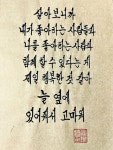 살아보니까
내가 좋아하는 사람들과
나를 좋아하는 사람과
함께 할 수 있다는 게
제일 행복한 것 같아
늘 옆에
있어줘서 고마워